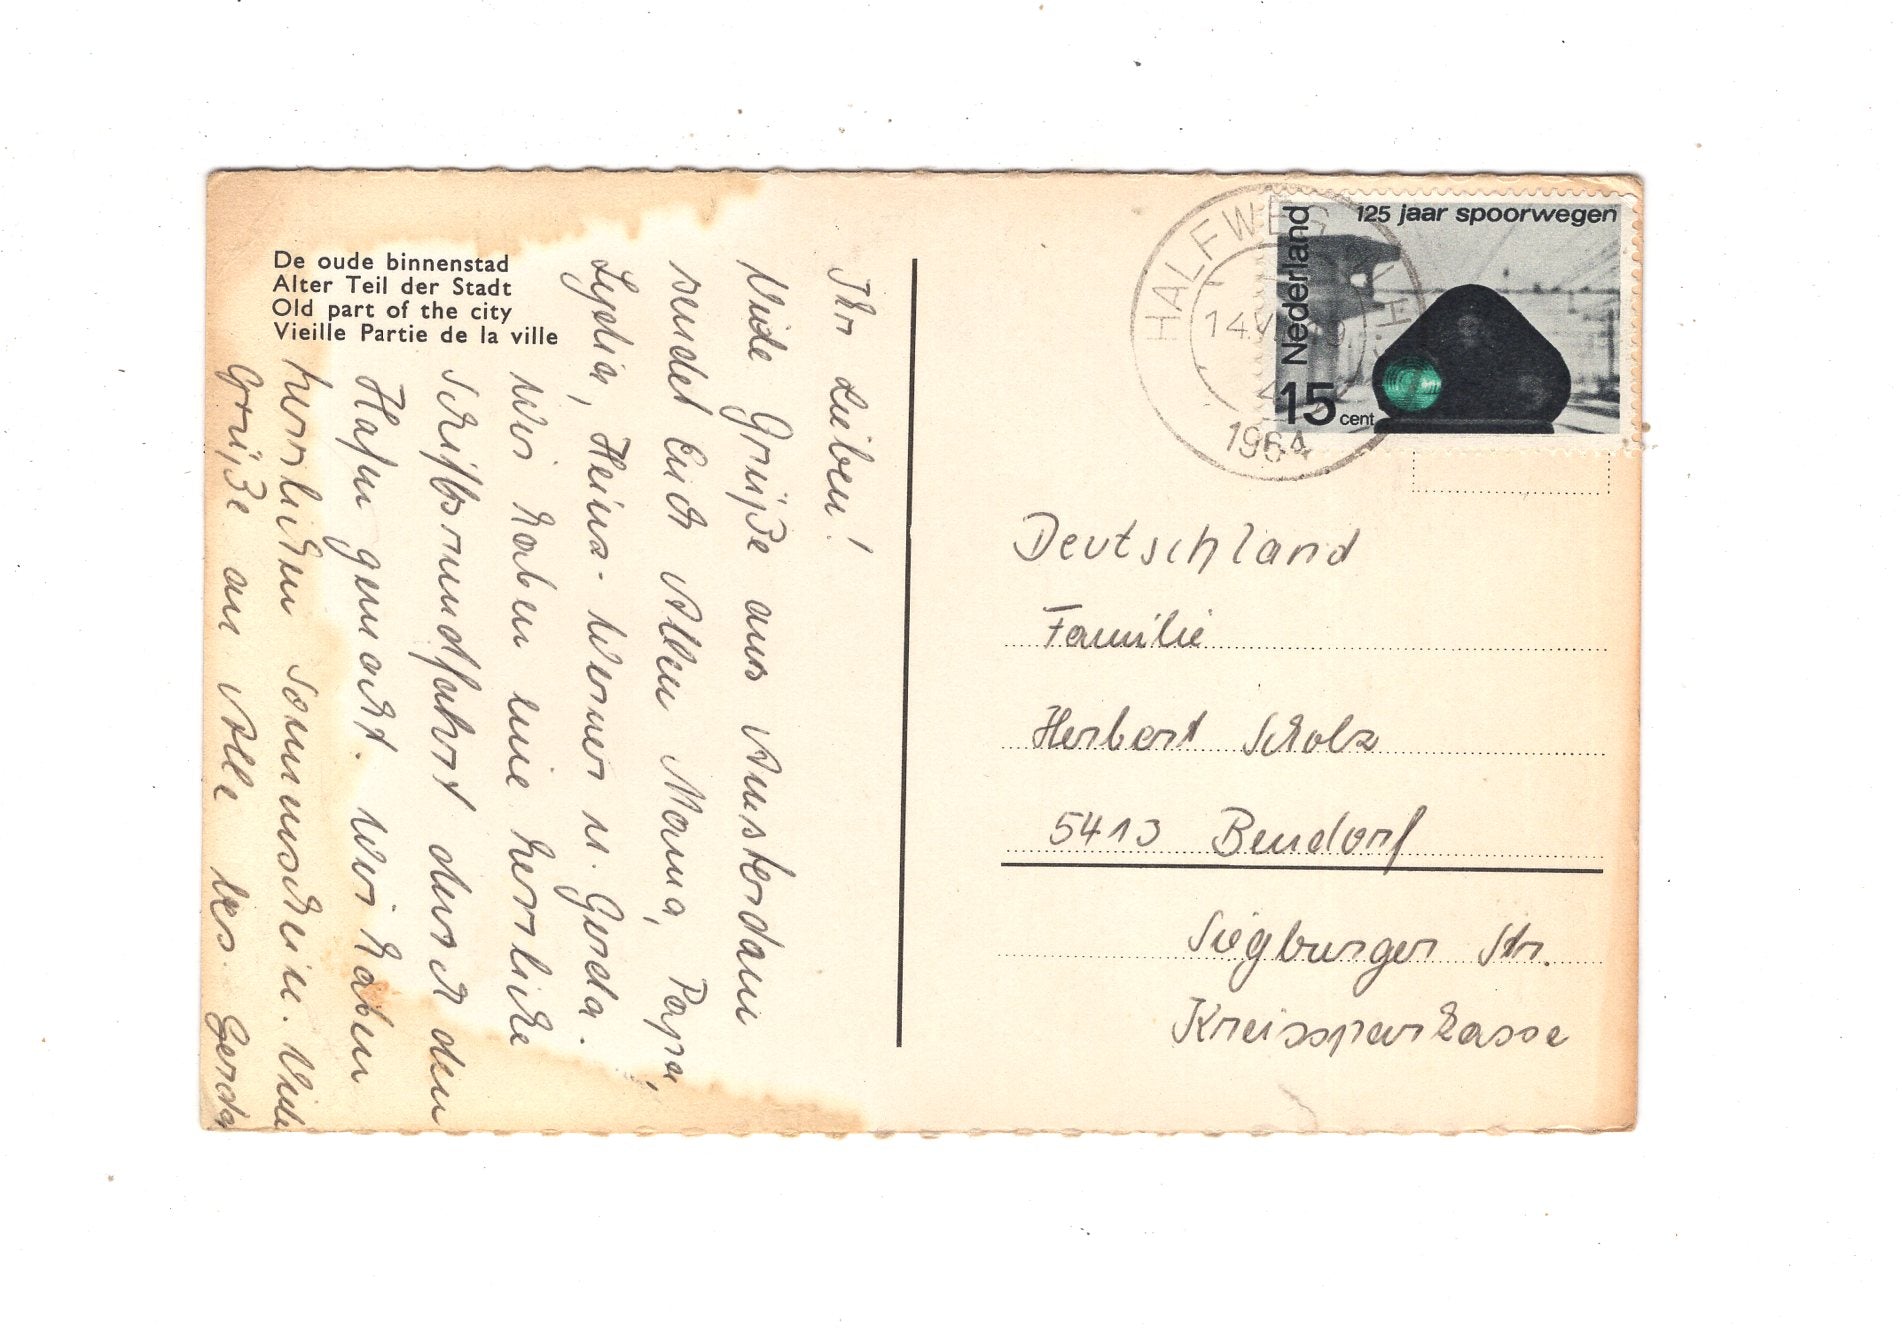 De oude binnenstad
Alter Teil der Stadt
Old part of the city
Vieille Partie de la ville
Ihr Lieben!
Viele Grüße aus Amsterdam
sendet Euch Allen Mama, Papa,
Lydia, Heinz-Werner u. Gerda.
Wir haben eine herrliche
Schiffsrundfahrt durch den
Hafen gemacht. Wir haben
herrlichen Sonnenschein. Viele
Grüße an Alle bes. Gerda
HALFWEG
14
1964
125 jaar spoorwegen
Nederland
15 cent
Deutschland
Familie
Herbert Scholz
5413 Bendorf
Siegburger Str.
Kreissparkasse